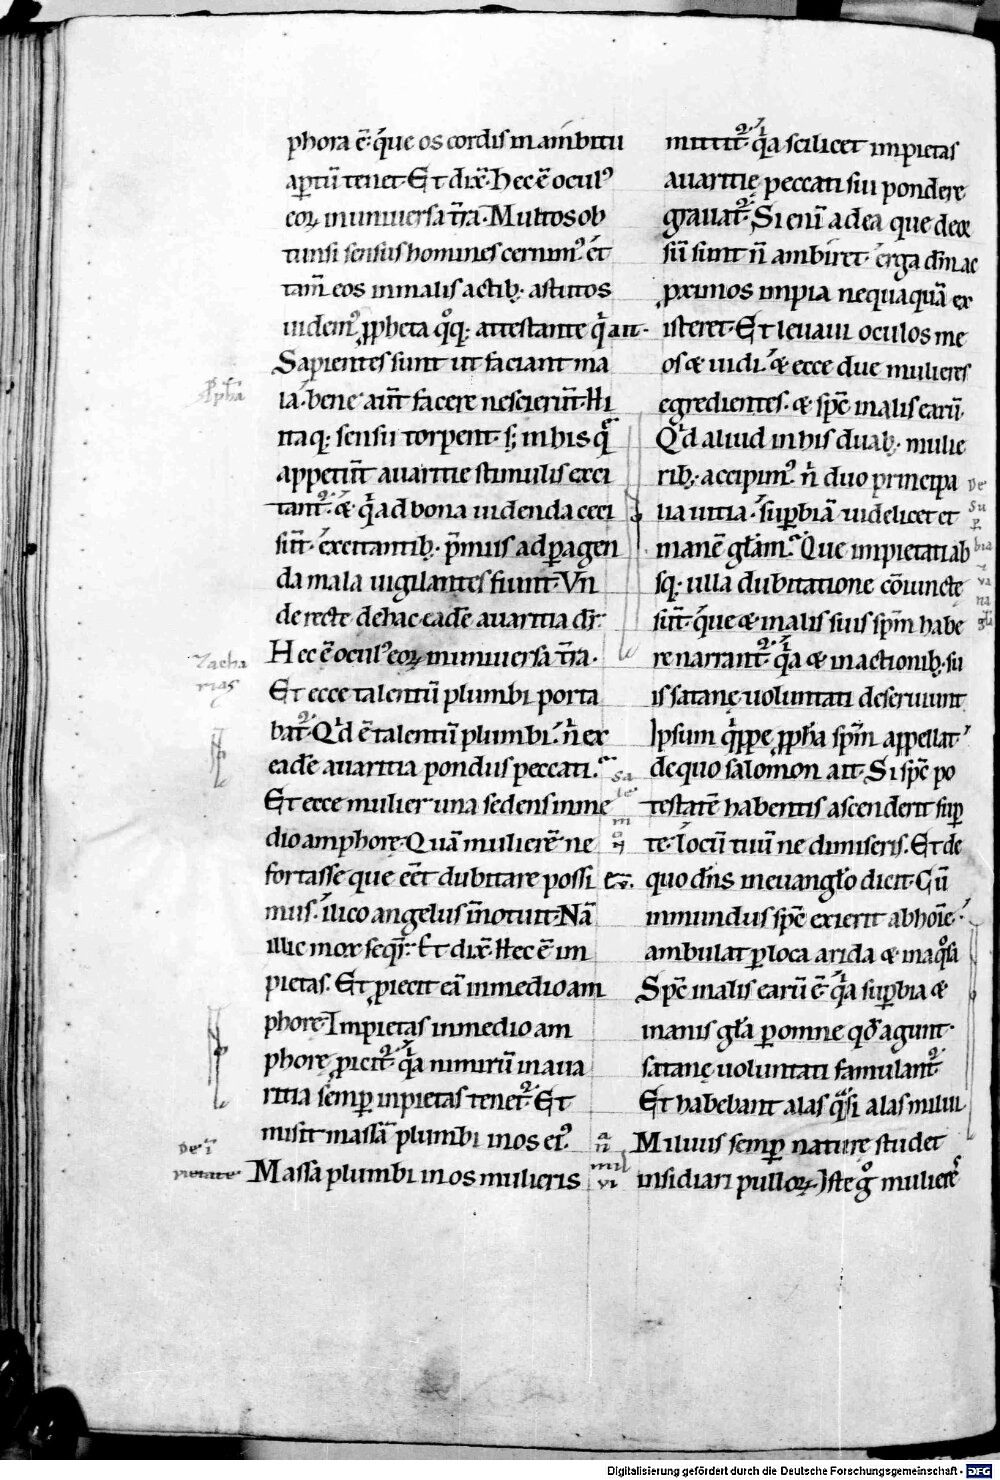 phora ē· q́ue os cordis in ambitu
aꝑtū tenet· Et dix̄· Hec ē ocul᷒
eoꝝ in uniuersa t̄ra· Multos ob
tunsi sensus homines cernim᷒· et
tam̄ eos in malis actib; astutos
uidem᷒· ꝓpheta qͦq; attestante qͥ ait·
Sapientes sunt ut faciant ma
la· bene aūt facere nescierūt· Hi
itaq; sensu torpent· s; in his q̄
appetūt auaritie stimulis exci
tant᷒· & qͥ ad bona uidenda ceci
sūt· excitantib; p̄miis ad ꝑagen
da mala uigilantes fiunt· Vn
de recte de hac eadē auaritia dr̄·
Hec ē ocul᷒ eoꝝ in uniuersa t̄ra·
Et ecce talentū plumbi porta
bat᷒· Qͥd ē talentū plumbi· n̄ ex
eadē auaritia pondus peccati·
Et ecce mulier una sedens in me
dio amphorę· Quā mulierē ne
fortasse que eēt dubitare possi
mus· ilico angelus īnotuit· Nā
illic mox seqͥr̄· Et dix̄· Hec ē im
pietas· Et ꝓiecit eā in medio am
phorę· Impietas in medio am
phorę ꝓicit᷒· qͥa nimirū in aua
ritia semꝑ inpietas tenet᷒· Et
misit massā plumbi in os ei᷒·
Massa plumbi in os mulieris
mittit᷒· qͥa scilicet impietas
auaritię peccati sui pondere
grauat᷒· Si enī ad ea que deor
sū sunt n̄ ambiret· erga dm̄ ac
ꝓximos impia nequaquā ex
isteret· Et leuaui oculos me
os & uidi· & ecce due mulieres
egredientes· & sp̄c in alis earū·
Qͥd aliud in his duab; mulie
rib; accipim᷒· n̄ duo principa
lia uitia· suꝑbiā uidelicet et
inanē glām· Que impietati ab
sq; ulla dubitatione cōiuncte
sūt· que & in alis suis sp̄m habe
re narrant᷒· qͥa & in actionib; su
is satanę uoluntati deseruiunt
Ipsum qͥppe ꝓph̄a sp̄m appellat·
de quo salomon ait· Si sp̄c po
testatē habentis ascenderit suꝑ
te· locū tuū ne dimiseris· Et de
quo dn̄s in euanglo dicit· Cū
inmundus sp̄c exierit ab hoīe·
ambulat ꝑ loca arida & inaqͦsa
Sp̄c in alis earū ē· qͥa suꝑbia &
inanis glā ꝑ omne qđ agunt·
satanę uoluntati famulant᷒·
Et habebant alas qͣsi alas milui
Miluus semꝑ naturę studet
insidiari pulloꝝ· Iste gͦ mulierē
ꝓph̄a
Zacha
rias
De ī
pietate
Sa
lo
m
o
n
Ev̄.
De
su
ꝑ
bia
7
va
na
gl̄
a
n
mil
vi